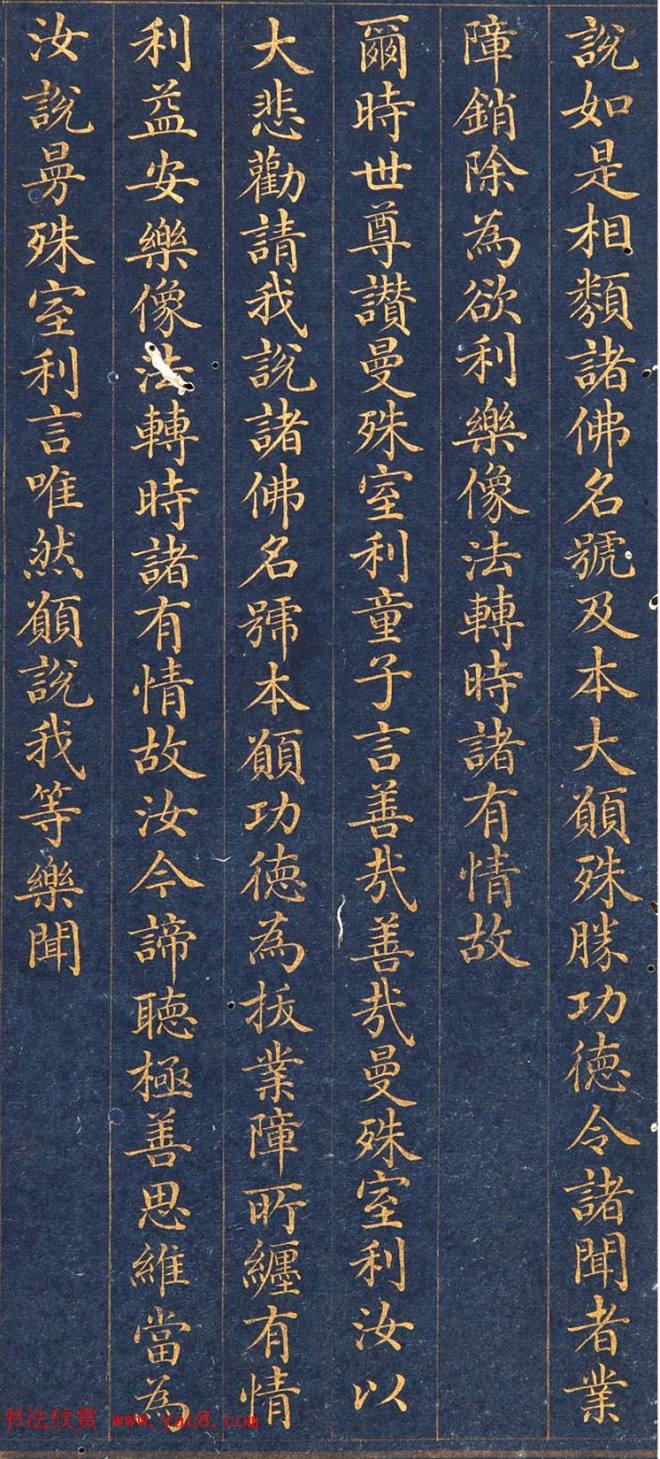 說如是相類諸佛名號及本大願殊勝功德令諸聞者業
障銷除為欲利樂像法轉時諸有情故
爾時世尊讃曼殊室利童子言善哉善哉曼殊室利汝以
大悲勸請我說諸佛名號本願功德為拔業障所纏有情
利益安樂像法轉時諸有情故汝今諦聽極善思維當為
汝說曼殊室利言唯然願說我等樂聞
书法欣赏 www.yac8.com